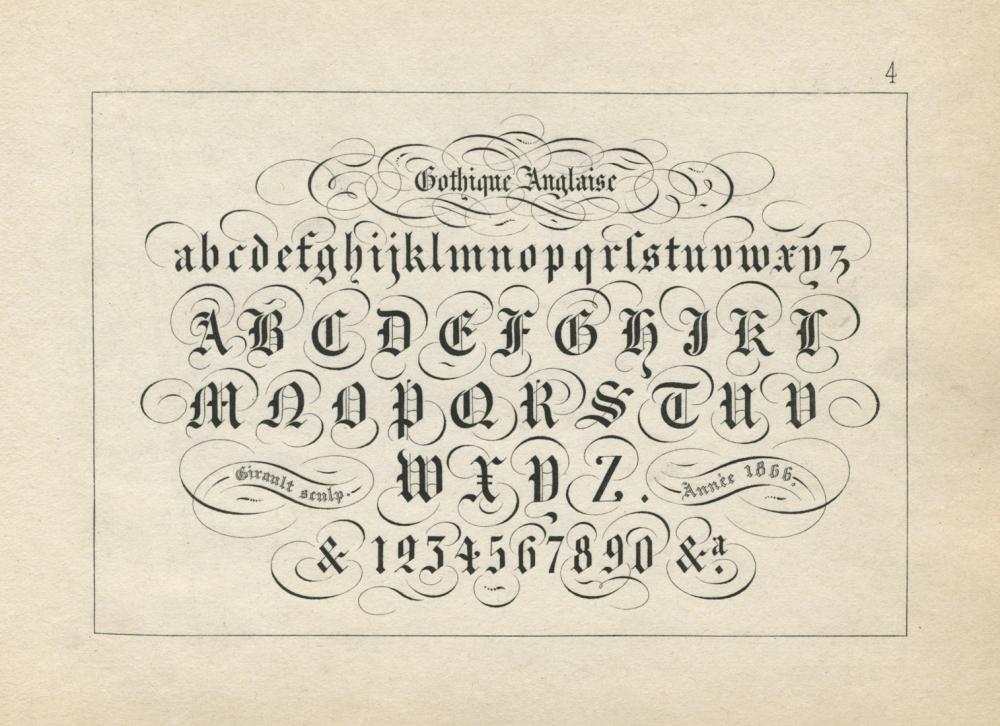 4
Gothique Anglaise
abcdefghijklmnopqrſstuvwxyz
ABCDEFGHIJKL
MNOPQRSTUV
Girault sculp.
WXYZ.
Année 1866.
& 1234567890 &a.